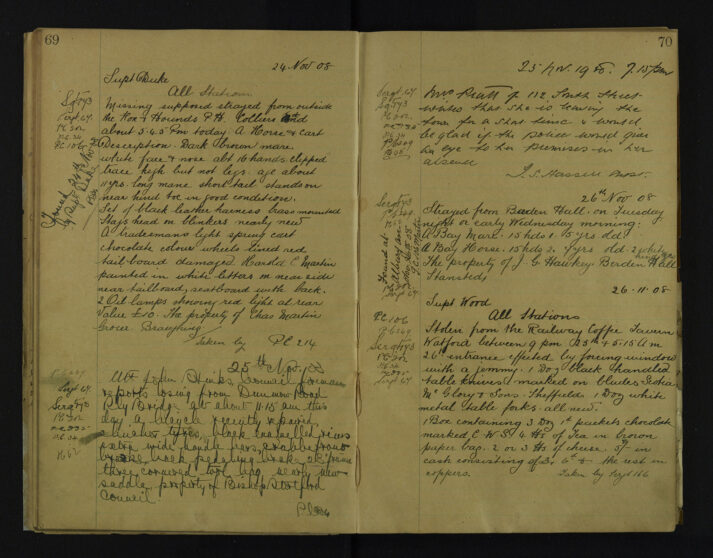 69
24 Nov 08
Supt Duke
All Stations
Missing supposed strayed from outside
the Fox & Hounds P.H. Colliers End
about 5.45 Pm today A Horse & Cart
Description. Dark brown mare
white face & nose abt 16 hands clipped
trace high but not legs. age about
11 yrs. long mane short tail stands on
near hind toe in good condition.
Set of black leather harness brass mounted
Stags head on blinkers nearly new
A tradesmans light spring cart
chocolate colour wheels lined red
tail board damaged. Harold C Martin
painted in white letters on near side
near tailboard, seatboard with back.
2 Oil lamps showing red light at rear
Value £10. The property of Chas Martin
Grocer Braughing
Taken by PC 214
Sgt 93
Sergt 67.
PC 302
PC 34
PC 106
25th Nov. 08
Mr John Hinks, Council foreman
reports losing from Dunmow Road
Rly Bridge at about 11.15 am this
day a bicycle recently repaired
black enamelled rims
extra wide handle bars,
back pedalling brake
three cornered tool bag nearly new
saddle property of Bishop Stortford
Council.
Sergt 67.
Sergt 93
PC 302
PC 34
70
25 Nov. 1908. 7.15 pm
Mrs Pratt of 112 South Street
writes that she is leaving the
town for a short time & would
be glad if the police would give
an eye to her premises in her
absence
Sergt 67.
Sgt 93
PC 302
PC 34
PC 269
26th Nov 08
Strayed from Berden Hall. on Tuesday
night or early Wednesday morning:
A Bay Mare. 15 hds 1. 15 yrs old.
A Bay Horse. 15 hds 2. 7 yrs old. 2 white
The property of J. G Hawkey. Berden Hall
Stansted
Sergt 93
Sergt 67
26-11-08
Supt Wood
All Stations
Stolen from the Railway Coffee Tavern
Watford between 9 pm 25th & 5.15 am
26th entrance effected by forcing window
with a jemmy. 1 Doz black handled
table knives marked on blades
McGlory & Sons. Sheffield. 1 Doz white
metal table forks. all new.
1 Box containing 3 Doz 1d packets chocolate
marked E.W.S. 4 lbs of Tea in brown
paper bag. 2 or 3 lbs of cheese. 5/- in
cash consisting of 3, 6ds & the rest in
coppers. Taken by Sgt 166
PC 106
Sergt 93
PC 302
PC 34
Sergt 67